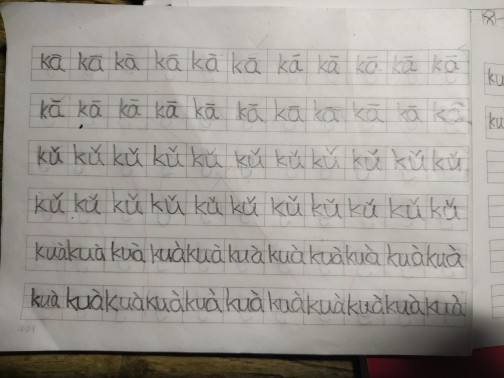 kā kā kā kā kā kā kā kā kā kā kā
kā kā kā kā kā kā kā kā kā kā kā
kǔ kǔ kǔ kǔ kǔ kǔ kǔ kǔ kǔ kǔ kǔ
kǔ kǔ kǔ kǔ kǔ kǔ kǔ kǔ kǔ kǔ kǔ
kuà kuà kuà kuà kuà kuà kuà kuà kuà kuà kuà
kuà kuà kuà kuà kuà kuà kuà kuà kuà kuà kuà
ku
ku